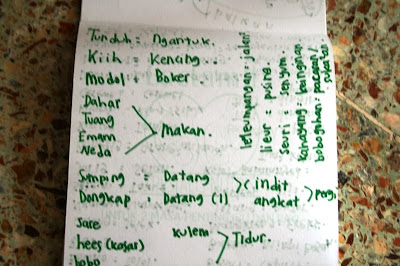 Tunduh = Ngantuk.
Kiih = Kencing.
Modol = Boker.
Dahar
Tuang
Emam
Neda
makan.
Sumping = Datang
Dongkap = Datang (1)
indit
angkat
pergi
Sare
hees (kasar)
bobo
kulem
Tidur.
leleumpangan = jalan
lieur = pusing
seuri = senyum
kahayang = keinginan
bobogohan = pacaran/